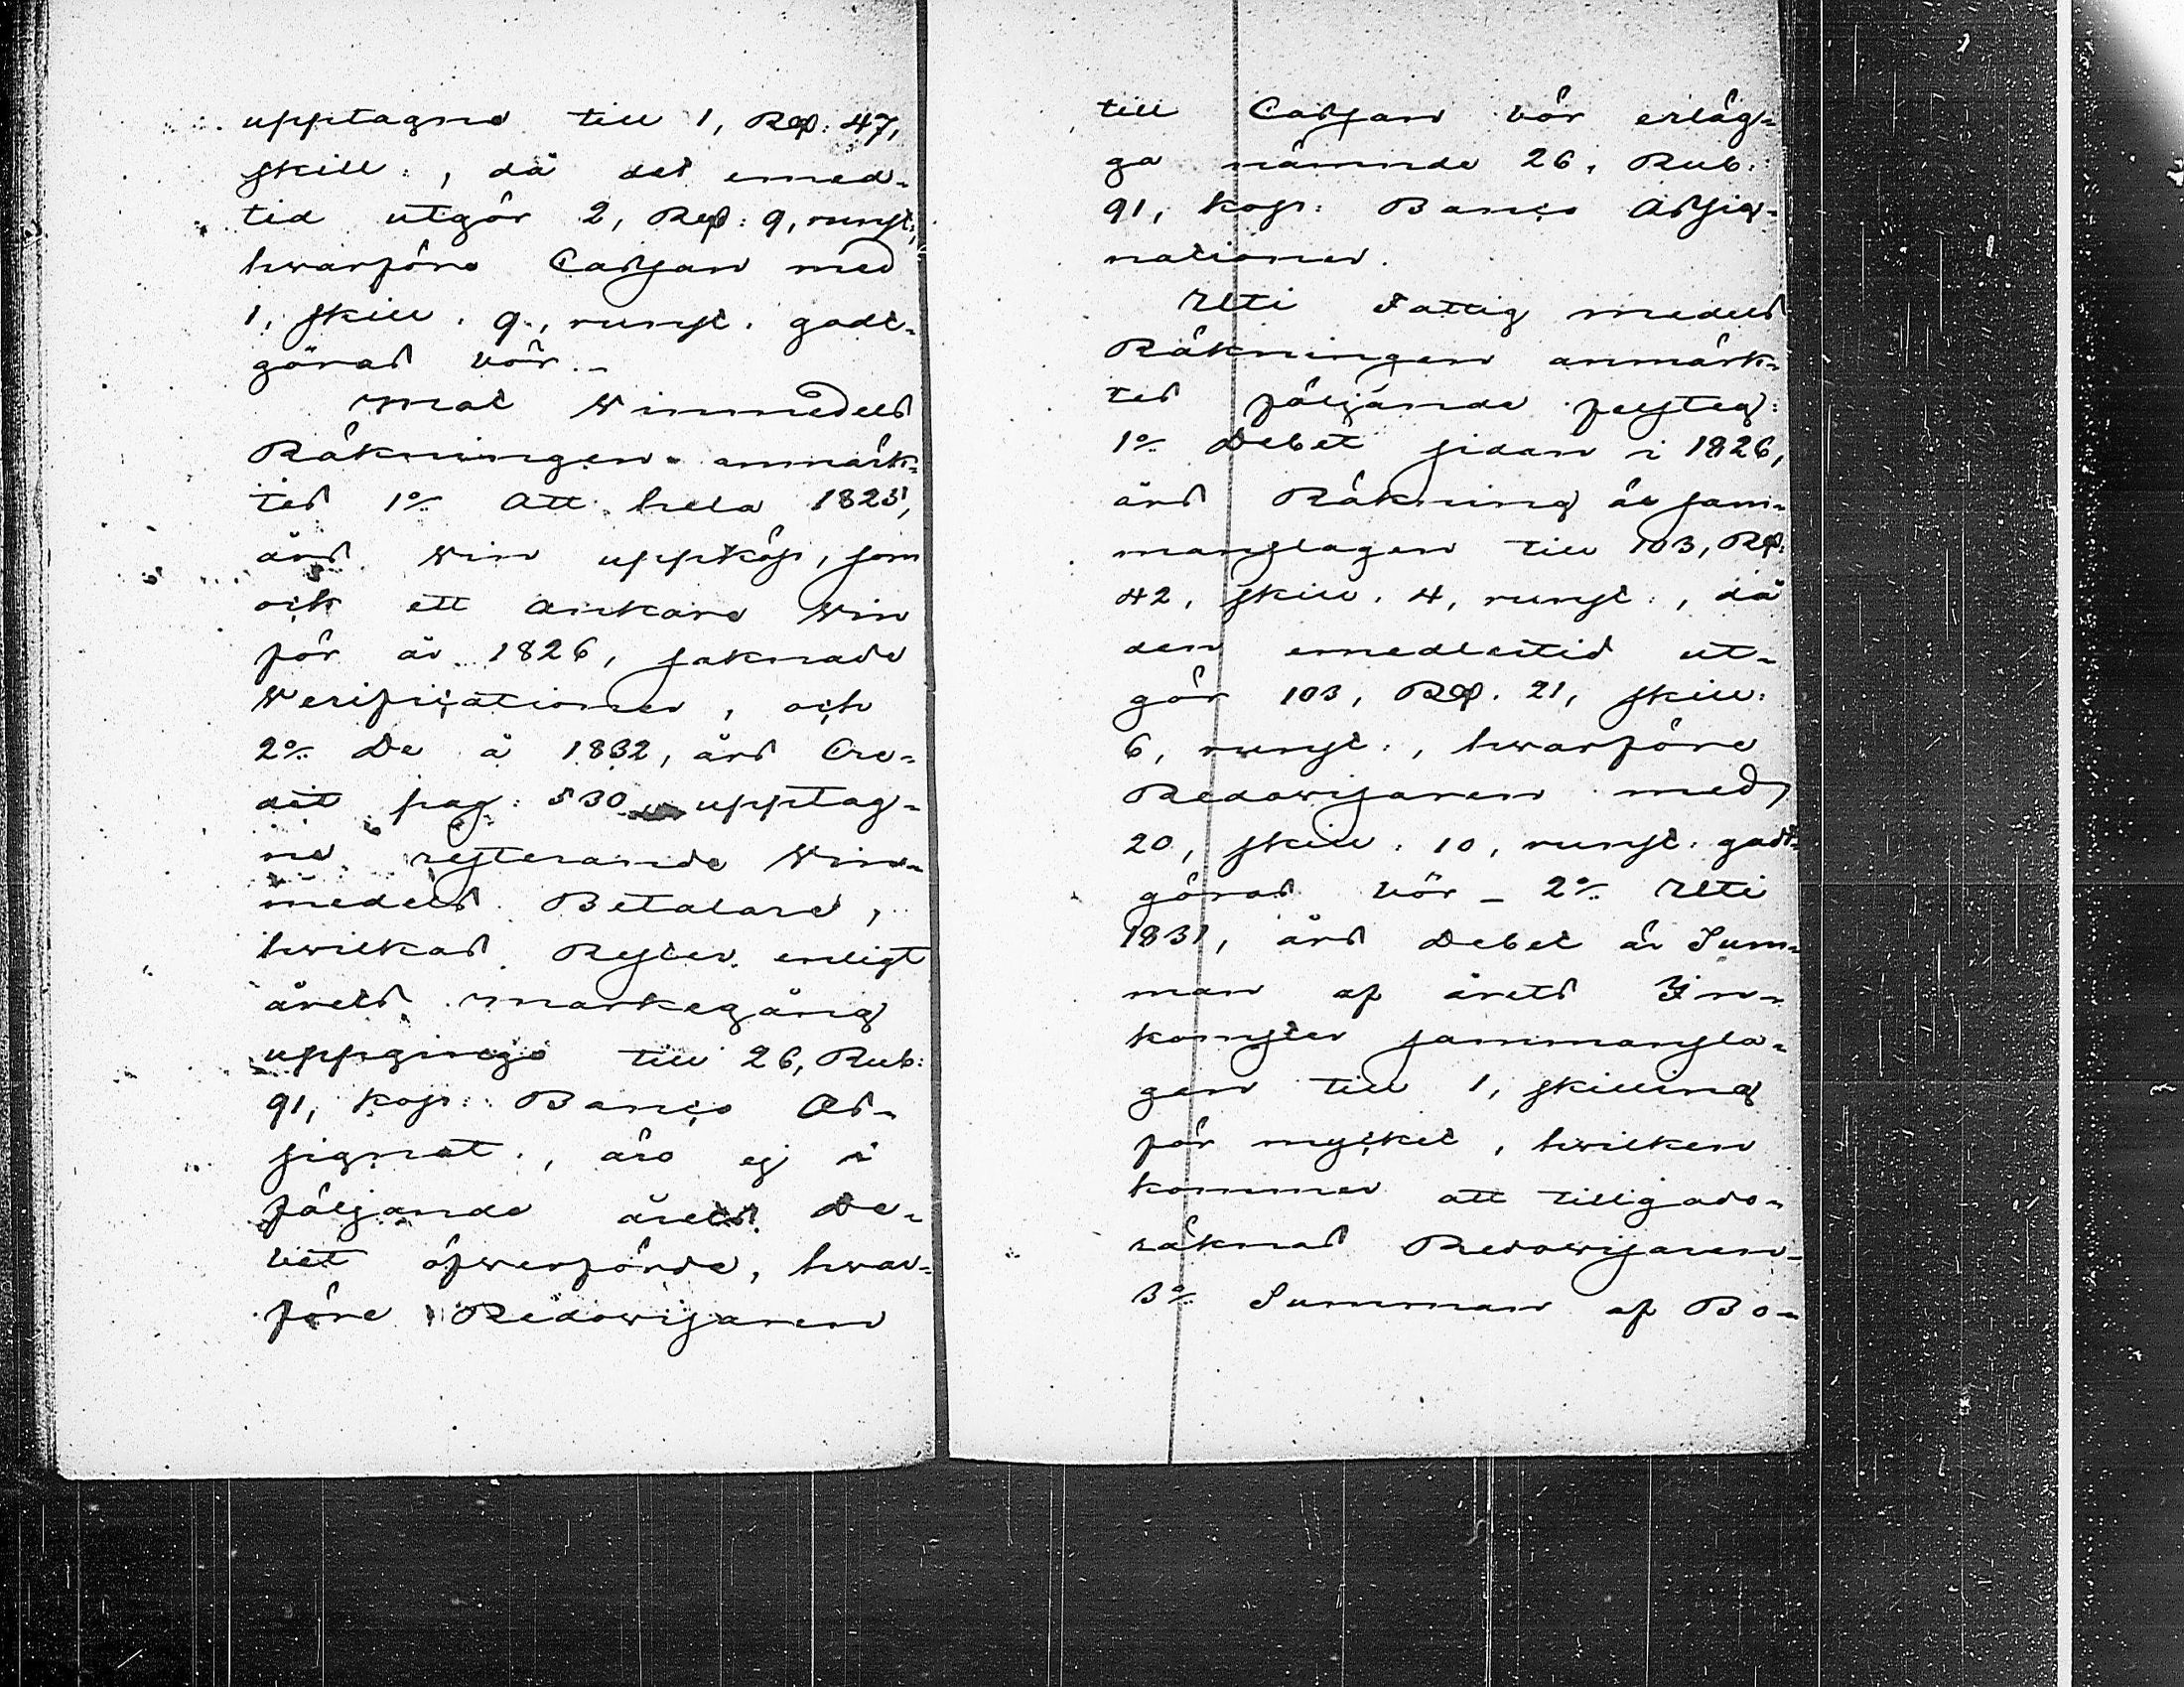 upptagne till 1, Rd: 47,
skill:, då det emed-
tid utgör 2, Rd: 9, runst:,
hwarföre Cassan med
1, skill. 9, runst. godt-
göras bör.-
Mot Winmedels
Räkningen anmärk-
tes 1o Att hela 1825,
års Win uppköp, som
ock ett Ankare Win
för år 1826, saknade
Werificationer, och
2o De å 1832, års Cre-
dit pag: 530 upptag-
ne resterande Win-
medels Betalare,
hwilkas Rester enligt
årets Markegång
uppgingo till 26, Rub:
91, kop: Banco As-
signat., äro ej i
följande årets De-
bet öfwerförde, hwar-
före Redowisaren
till Cassan bör erläg-
ga nämnde 26, Rub:
91, kop: Banco Assig-
nationer.
Uti Fattig medels
Räkningen anmärk-
tes följande felsteg:
1o Debet sidan i 1826,
års Räkning är sam-
manslagen till 103, Rd:
42, skill. 4, runst:, då
den emedlertid ut-
gör 103, Rd. 21, skill:
6, runst:, hwarföre
Redowisaren med
20, skill. 10, runst: godt-
göras bör - 2o Uti
1831, års Debet är Sum-
man af årets In-
komster sammansla-
gen till 1, skilling
för mycket, hwilken
kommer att tillgodo-
räknas Redowisaren-
3o Summan af Bo-